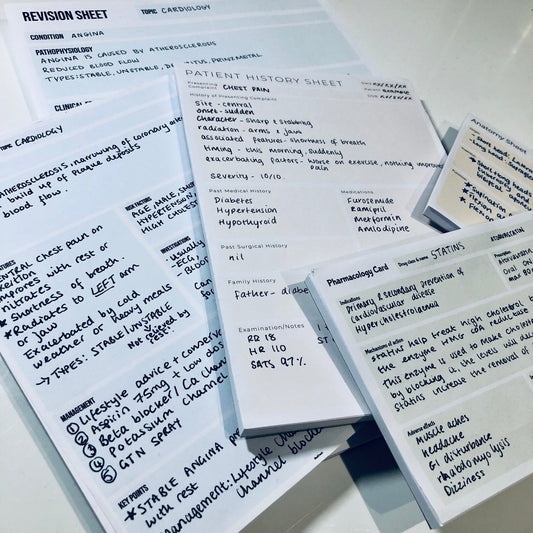 REVISION SHEET
TOPIC CARDIOLOGY
CONDITION ANGINA
PATHOPHYSIOLOGY
ANGINA IS CAUSED BY ATHEROSCLEROSIS
REDUCED BLOOD FLOW
TYPES: STABLE, UNSTABLE, PRINZMETAL
CARDIOLOGY
ATHEROSCLEROSIS: narrowing of coronary
build up of plaque deposits
blood flow.
RISK FACTORS
AGE, MALE,
HYPERTENSION,
HIGH CHOLEST
INVESTIGATIONS
usually
-ECG,
BLOO
CENTRAL chest pain on
improves with rest or
nitrates
* Shortness of breath.
* Radiates to LEFT arm
or jaw
Exacerbated by cold
weather or heavy meals
→ TYPES: STABLE/UNSTABLE
Not relieved by
rest.
MANAGEMENT
① Lifestyle advice + conserva
② Aspirin 75mg + low dos
③ Beta blocker/ Ca chan
④ Potassium channel
⑤ GTN SPRAY
KEY POINTS
* STABLE ANGINA
with rest
Management: Lifestyle
channel blocker
PATIENT HISTORY SHEET
Presenting Complaint CHEST PAIN
History of Presenting Complaint
Site - central
onset - sudden
character - sharp & stabbing
radiation - arms & jaws
associated features - shortness of breath
timing - this morning, suddenly
exacerbating factors - worse on exercise, nothing improves
pain
severity - 10/10.
Past Medical History
Diabetes
Hypertension
Hypothyroid
Medications
Furosemide
Ramipril
Metformin
Amlodipine
Past Surgical History
nil
Family History
Father - diabe
Examination/Notes
RR 18
HR 110
SATS 97%
Anatomy Sheet
Pharmacology Card
Drug class & name STATINS
Indications
Primary & secondary prevention of
cardiovascular disease
Hypercholesterolaemia
Mechanisms of action
Statins help treat high cholesterol b
the enzyme HMG COA reductase
This enzyme is used to make cholest
by blocking it, the levels will dec
statins increase the removal of
Adverse effects
Muscle aches
headache
GI disturbance
rhabdomyolysis
Dizziness